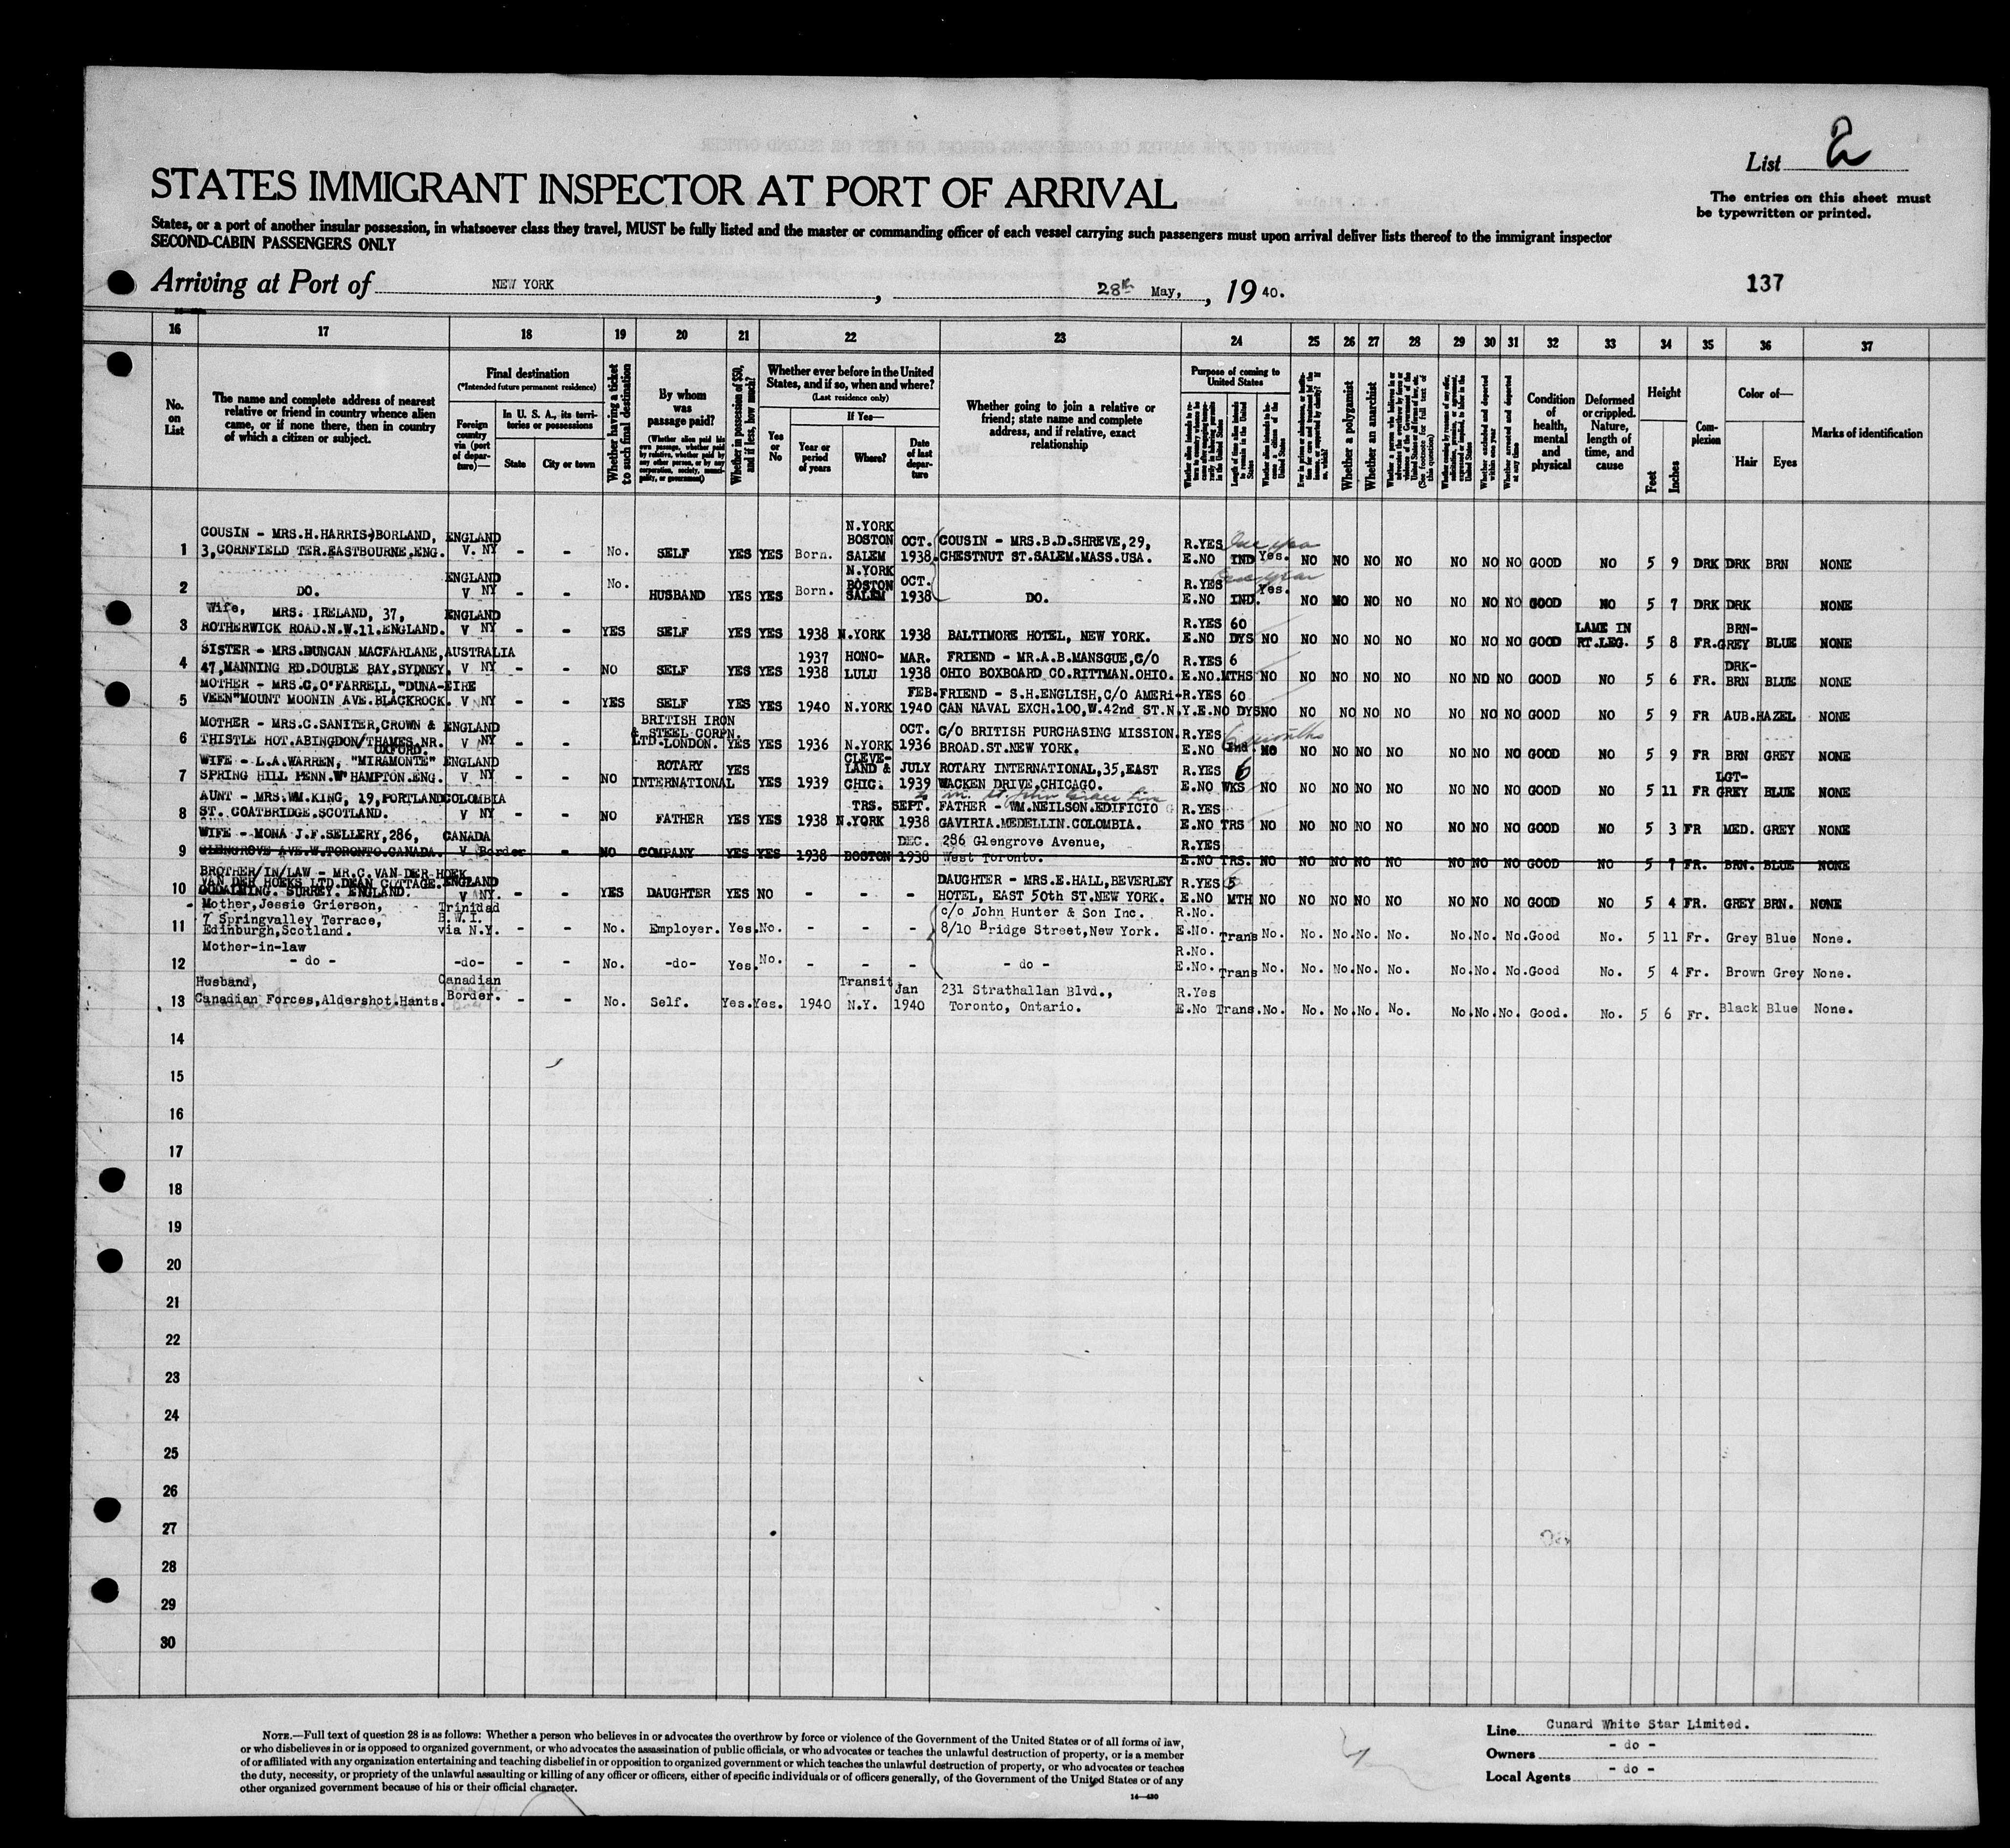 List 2
STATES IMMIGRANT INSPECTOR AT PORT OF ARRIVAL
The entries on this sheet must
be typewritten or printed.
States, or a port of another insular possession, in whatsoever class they travel, MUST be fully listed and the master or commanding officer of each vessel carrying such passengers must upon arrival deliver lists thereof to the immigrant inspector
SECOND-CABIN PASSENGERS ONLY
Arriving at Port of NEW YORK, 28th May, , 19 40.
137
16 17 18 19 20 21 22 23 24 25 26 27 28 29 30 31 32 33 34 35 36 37
No. on List
The name and complete address of nearest
relative or friend in country whence alien
came, or if none there, then in country
of which a citizen or subject.
Final destination
(*Intended future permanent residence)
Foreign country via (port of departure)—
In U. S. A., its territories or possessions
State
City or town
Whether having a ticket to such final destination
By whom was passage paid?
(Whether alien paid his own passage, whether paid by relative, whether paid by any other person, or by any corporation, society, municipality, or government)
Whether in possession of $50, and if less, how much?
Whether ever before in the United
States, and if so, when and where?
(Last residence only)
Yes or No
If Yes—
Year or period of years
Where?
Date of last departure
Whether going to join a relative or
friend; state name and complete
address, and if relative, exact
relationship
Purpose of coming to United States
Length of time alien intends to remain in the United States
Whether a polygamist
Whether an anarchist
Whether excluded and deported within one year
Whether arrested and deported at any time
Condition of health, mental and physical
Deformed or crippled. Nature, length of time, and cause
Height
Feet
Inches
Complexion
Color of—
Hair
Eyes
Marks of identification
1 COUSIN - MRS.H.HARRIS-BORLAND, 3,CORNFIELD TER.EASTBOURNE.ENG. ENGLAND V. NY - - No. SELF YES YES Born. N.YORK BOSTON SALEM OCT. 1938. COUSIN - MRS.B.D.SHREVE,29, CHESTNUT ST.SALEM.MASS.USA. R.YES E.NO IND Yes. NO NO NO NO NO NO NO GOOD NO 5 9 DRK DRK BRN NONE
2 DO. ENGLAND V NY - - No. HUSBAND YES YES Born. N.YORK BOSTON SALEM OCT. 1938 DO. R.YES E.NO IND. Yes. NO NO NO NO NO NO NO GOOD NO 5 7 DRK DRK NONE
3 Wife, MRS. IRELAND, 37, ROTHERWICK ROAD.N.W.11.ENGLAND. ENGLAND V NY - - YES SELF YES YES 1938 N.YORK 1938 BALTIMORE HOTEL, NEW YORK. R.YES E.NO 60 DYS NO NO NO NO NO NO NO NO GOOD LAME IN RT.LEG. 5 8 FR. BRN-GREY BLUE NONE
4 SISTER - MRS.DUNCAN MACFARLANE, 47,MANNING RD.DOUBLE BAY.SYDNEY. AUSTRALIA V NY - - NO SELF YES YES 1937 1938 HONO-LULU MAR. 1938 FRIEND - MR.A.B.MANSGUE,C/O OHIO BOXBOARD CO.RITTMAN.OHIO. R.YES E.NO. 6 MTHS NO NO NO NO NO NO NO NO GOOD NO 5 6 FR. DRK-BRN BLUE NONE
5 MOTHER - MRS.C.O'FARRELL,"DUNA-VEEN"MOUNT MOONIN AVE.BLACKROCK. EIRE V NY - - YES SELF YES YES 1940 N.YORK FEB. 1940 FRIEND - S.H.ENGLISH,C/O AMERI-CAN NAVAL EXCH.100,W.42nd ST.N.Y. R.YES E.NO 60 DYS NO NO NO NO NO NO NO NO GOOD NO 5 9 FR AUB. HAZEL NONE
6 MOTHER - MRS.C.SANITER,CROWN & THISTLE HOT.ABINGDON/THAMES.NR. OXFORD. ENGLAND V NY BRITISH IRON & STEEL CORPN. LTD.LONDON. YES YES 1936 N.YORK OCT. 1936 C/O BRITISH PURCHASING MISSION. BROAD.ST.NEW YORK. R.YES E.NO 6 months Ind. NO NO NO NO NO NO NO NO GOOD NO 5 9 FR BRN GREY NONE
7 WIFE - L.A.WARREN, "MIRAMONTE" SPRING HILL PENN.W'HAMPTON.ENG. ENGLAND V NY - - NO ROTARY INTERNATIONAL YES YES 1939 CLEVE-LAND & CHIC. JULY 1939 ROTARY INTERNATIONAL,35,EAST WACKEN DRIVE,CHICAGO. R.YES E.NO 6 WKS NO NO NO NO NO NO NO NO GOOD NO 5 11 FR LGT-GREY BLUE NONE
8 AUNT - MRS.WM.KING, 19,PORTLAND ST. COATBRIDGE.SCOTLAND. COLOMBIA V NY - - NO FATHER YES YES 1938 TRS. N.YORK SEPT. 1938 FATHER - WM.NEILSON.EDIFICIO GAVIRIA.MEDELLIN.COLOMBIA. R.YES E.NO TRS NO NO NO NO NO NO NO NO GOOD NO 5 3 FR MED. GREY NONE
9 WIFE - MONA J.F.SELLERY,286, GLENGROVE AVE.W.TORONTO.CANADA. CANADA V Border - NO COMPANY YES YES 1938 BOSTON DEC. 1938 286 Glengrove Avenue, West Toronto. R.YES E.NO TRS. NO NO NO NO NO NO NO NO GOOD NO 5 7 FR. BRN. BLUE NONE
10 BROTHER/IN/LAW - MR.C. VAN DER HOEK VAN DER HOEKS LTD.DEAN COTTAGE. GODALMING. SURREY. ENGLAND. ENGLAND V NY. - - YES DAUGHTER YES NO - - - DAUGHTER - MRS.E.HALL,BEVERLEY HOTEL, EAST 50th ST.NEW YORK. R.YES E.NO 5 MTH NO NO NO NO NO NO NO NO GOOD NO 5 4 FR. GREY BRN. NONE
11 Mother,Jessie Grierson, 7 Springvalley Terrace, Edinburgh,Scotland. Trinidad B.W.I. via N.Y. - - No. Employer. Yes. No. - - - c/o John Hunter & Son Inc. 8/10 Bridge Street,New York. R.No. E.No. Trans No. No. No. No. No. No. No. No. Good No. 5 11 Fr. Grey Blue None.
12 Mother-in-law - do - -do- - - No. -do- Yes. No. - - - - do - R.No. E.No. Trans No. No. No. No. No. No. No. No. Good No. 5 4 Fr. Brown Grey None.
13 Husband, Canadian Forces,Aldershot.Hants. Canadian Border. - - No. Self. Yes. Yes. 1940 Transit N.Y. Jan 1940 231 Strathallan Blvd., Toronto, Ontario. R.Yes E.No Trans. No. No. No. No. No. No. No. No. Good. No. 5 6 Fr. Black Blue None.
14
15
16
17
18
19
20
21
22
23
24
25
26
27
28
29
30
NOTE.—Full text of question 28 is as follows: Whether a person who believes in or advocates the overthrow by force or violence of the Government of the United States or of all forms of law,
or who disbelieves in or is opposed to organized government, or who advocates the assassination of public officials, or who advocates or teaches the unlawful destruction of property, or is a member
of or affiliated with any organization entertaining and teaching disbelief in or opposition to organized government or which teaches the unlawful destruction of property, or who advocates or teaches
the duty, necessity, or propriety of the unlawful assaulting or killing of any officer or officers, either of specific individuals or of officers generally, of the Government of the United States or of any
other organized government because of his or their official character.
14—480
Line Cunard White Star Limited.
Owners - do -
Local Agents - do -